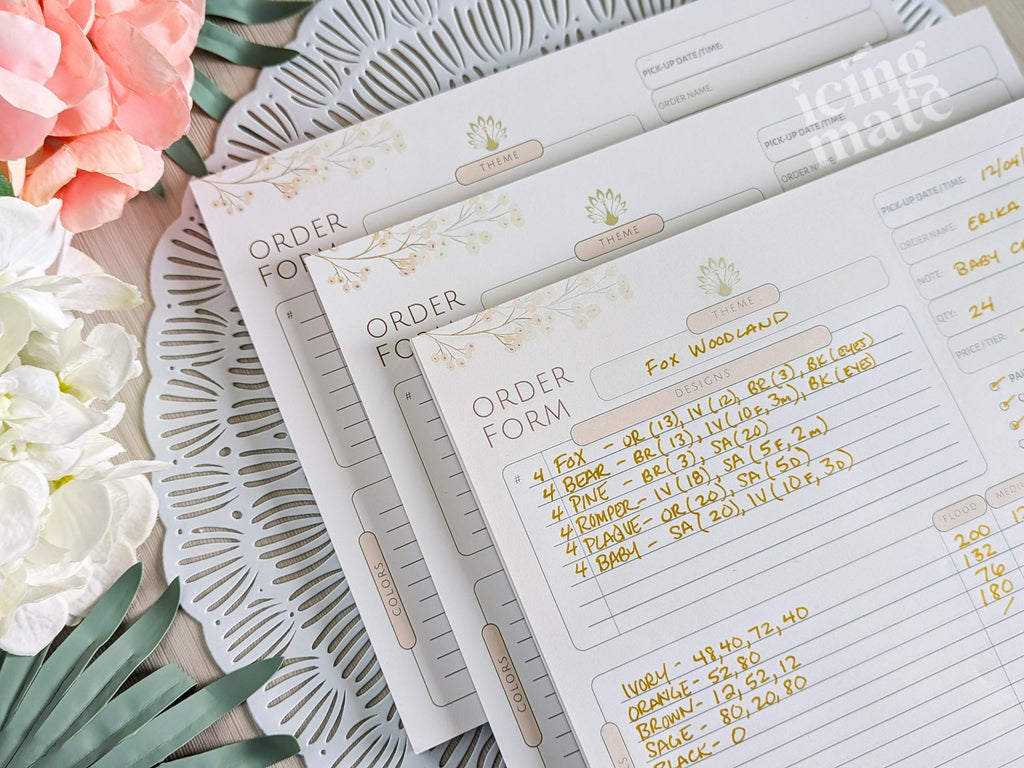 icing
mate
PICK-UP DATE/TIME:
ORDER NAME:
THEME
ORDER
#
COLORS
PICK-UP DATE/TIME:
ORDER NAME
THEME
ORDER
#
COLORS
PICK-UP DATE/TIME: 12/04/
ORDER NAME: ERIKA
NOTE: BABY
QTY: 24
PRICE/TIER:
ORDER
FORM
THEME
FOX WOODLAND
DESIGNS
#
4 FOX - OR (13), IV (12), BR (3), BK (EYES)
4 BEAR - BR (13), IV (10F, 3M), BK (EYES)
4 PINE - BR (3), SA (20)
4 ROMPER - IV (18), SA (5F, 2M)
4 PLAQUE - OR (20), SA (5D)
4 BABY - SA (20), IV (10F, 3D)
FLOOD
200
132
76
180
/
IVORY - 48, 40, 72, 40
ORANGE - 52, 80
BROWN - 12, 52, 12
SAGE - 80, 20, 80
BLACK - 0